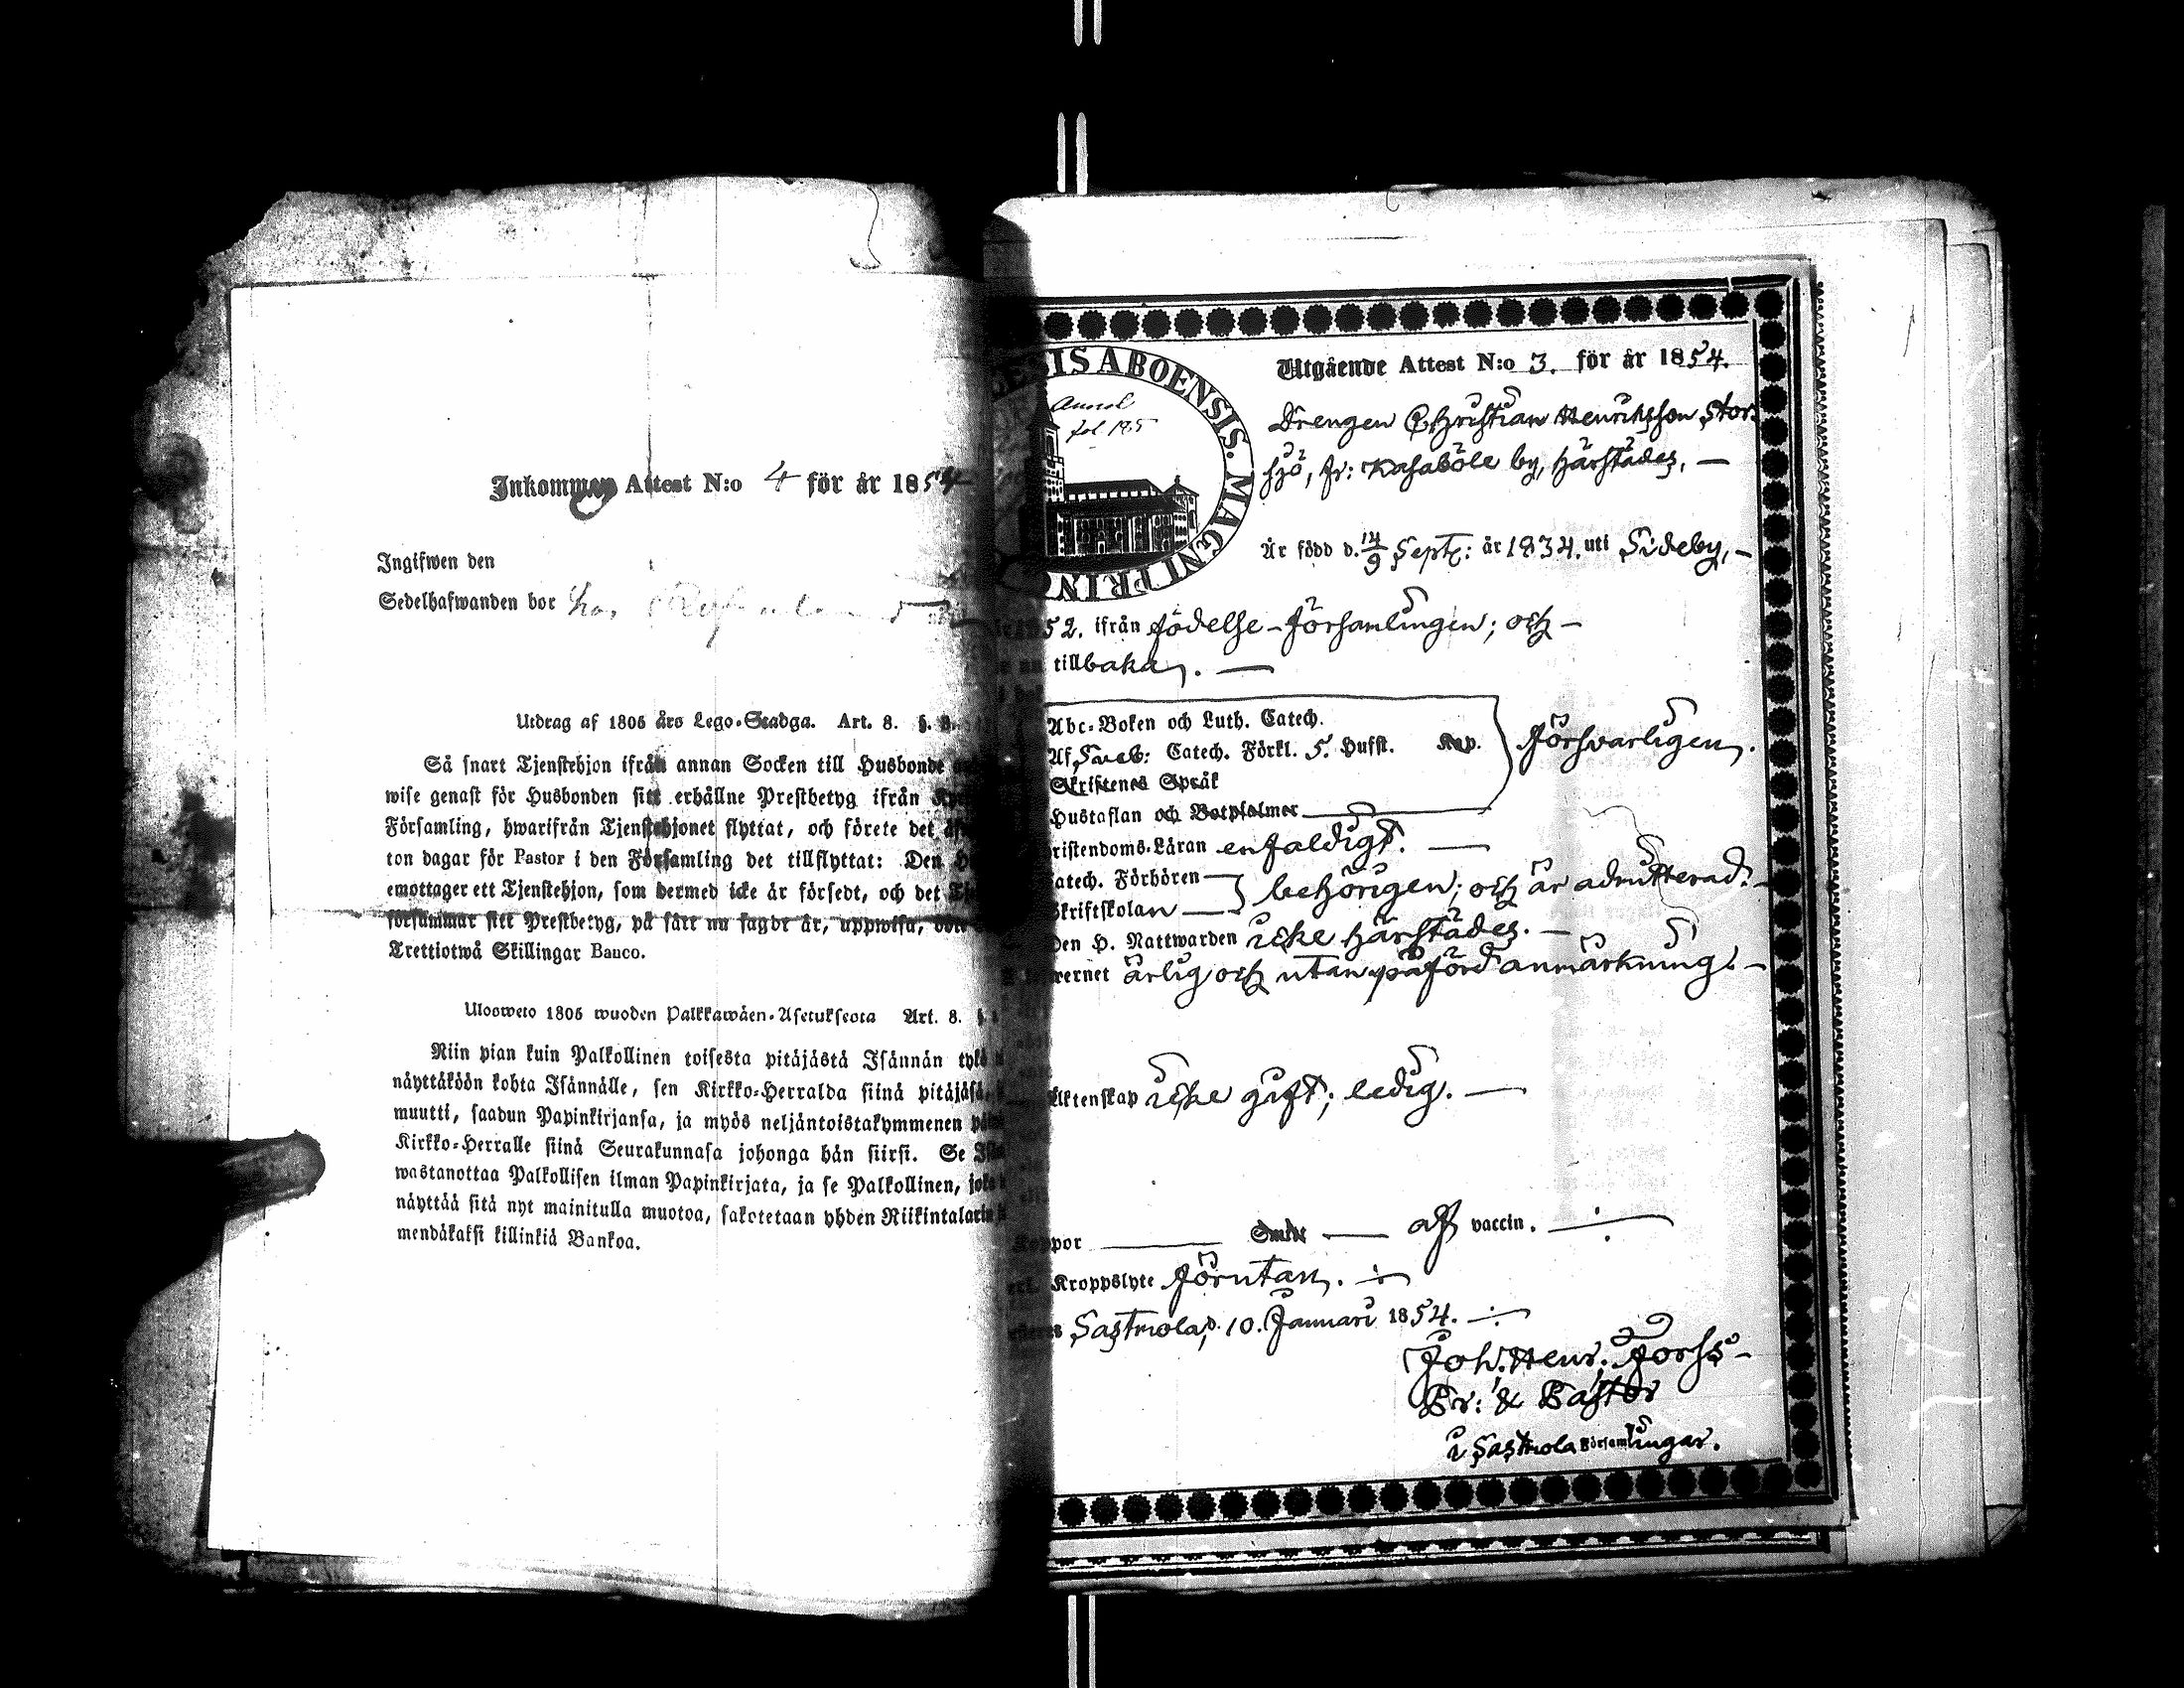 Inkommen Attest N:o 4 för år 1854
Ingifwen den
Sedelhafwanden bor hos
Utdrag af 1805 års Lego-Stadga. Art. 8. §. 8.
Så snart Tjenstehjon ifrån annan Socken till Husbonde
wise genast för Husbonden sitt erhållne Prestbetyg ifrån
Församling, hwarifrån Tjenstehjonet flyttat, och förete det
ton dagar för Pastor i den Församling det tillflyttat: Den
emottager ett Tjenstehjon, som dermed icke är försedt, och det
försummar sitt Prestbetyg, på sätt nu sagdt är, uppwisa,
Trettiotwå Skillingar Banco.
Ulosweto 1805 wuoden Palkkawäen-Asetuksesta Art. 8.
Niin pian kuin Palkollinen toisesta pitäjästä Isännän tykö
näyttäköön kohta Isännälle, sen Kirkko-Herralda siinä pitäjäsä,
muutti, saadun Papinkirjansa, ja myös neljäntoistakymmenen
Kirkko-Herralle siinä Seurakunnasa johonga hän siirsi. Se
wastanottaa Palkollisen ilman Papinkirjata, ja se Palkollinen, joka
näyttää sitä nyt mainitulla muotoa, sakotetaan yhden Riikintalarin
mendäkaksi killinkiä Bankoa.
ABOENSIS. MAGNI PRINC
Utgående Attest N:o 3. för år 1854.
fol. 185
Drengen Christian Henriksson Stor-
sjö, fr: Kasaböle by, härstädes, —
Är född d. 14/9 Septr: år 1834. uti Sideby, —
52. ifrån födelse-församlingen; och —
tillbaka. —
Abc-Boken och Luth. Catech.
Af Sveb: Catech. Förkl. 5. Hufst. Kap. försvarligen.
Skriftenes Språk
Hustaflan och Botpsalmer
ristendoms-Läran enfaldigt. —
atech. Förhören — behörigen; och är admitterad. —
Skriftskolan —
Den H. Nattwarden icke härstädes. —
ernet ärlig och utan påförd anmärkning. —
Äktenskap icke gift; ledig. —
Koppor — Smitt — af vaccin. —
Kroppslyte förutan. —
Sastmola, d. 10. Januari 1854. —
Joh. Henr. Forss —
Pr: & Pastor
i Sastmola Församlingar.